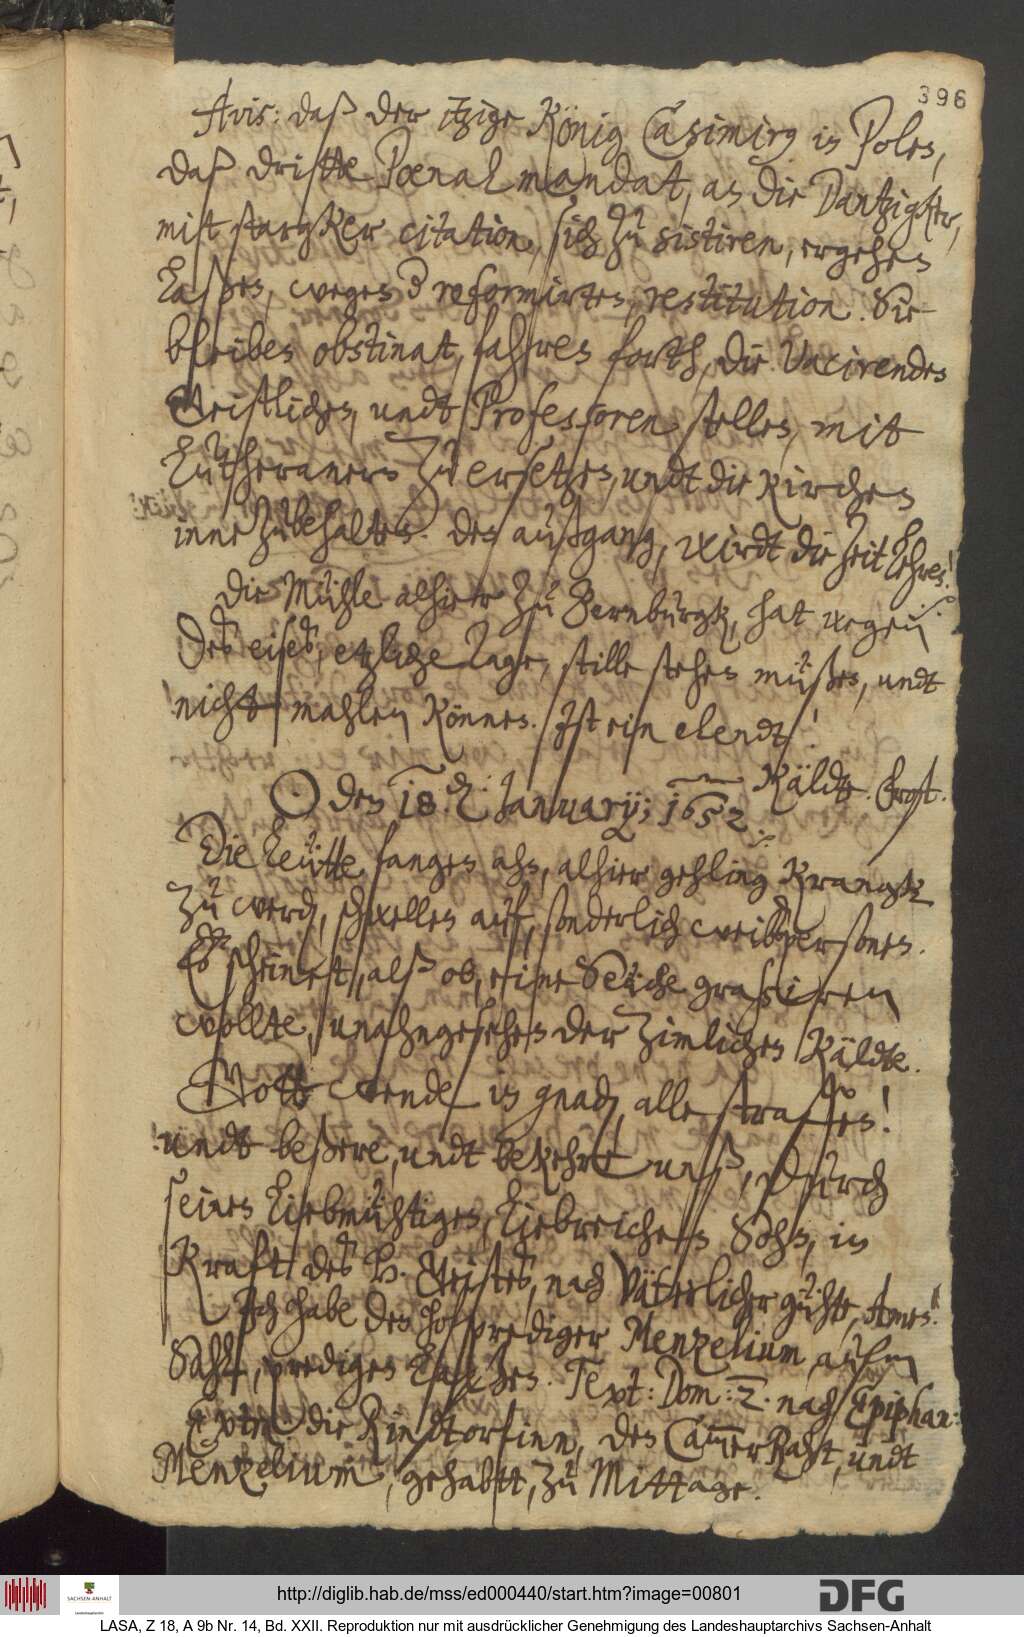 396
Avis: daß der itzige König Casimirg in Polen,
daß dritte Poenal mandat, an die Dantzigker,
mitt stargker citation, sich zu sistiren, ergehen
laßen, wegen d reformirten, restitution. Sie
bleiben obstinat, fahren forth, die Vacirenden
Geistlichen, undt Professoren stellen, mit
Lutheranern zu ersetzen, undt die Kirchen
inne zubehalten. Den außgang, wirdt die zeit lehren!
Die Mühle alhier zu Bernburgk, hat wegen
deß eises, etzliche Tage, stille stehen müßen, undt
nicht mahlen können. Ist ein elendt!
☉ den 18. d: January; 1652 Käldte. Frost.
Die Leütte, fangen ahn, alhier gehling Krangk
zu werd, schwellen auf, sonderlich weibßpersonen.
Es scheinet, alß ob, eine Seüche grassiren
wollte, unahngesehen der zimlichen Käldte.
Gott wende in gnad, alle straffen!
undt beßere, undt bekehre unß, durch
seinen Liebmühtigen, Liebreichen Sohn, in
Kraft deß H. Geistes, nach Väterlicher gühte, Amen!
Ich habe den hofprediger Menzelium aufm
Sahl, predigen laßen. Text: Dom: 2. nach Epiphan:
Extra: die Rindtorfinn, den CammerRaht, undt
Menzelium, gehabtt, zu Mittage.
http://diglib.hab.de/mss/ed000440/start.htm?image=00801
SACHSEN-ANHALT
Landeshauptarchiv
DFG
LASA, Z 18, A 9b Nr. 14, Bd. XXII. Reproduktion nur mit ausdrücklicher Genehmigung des Landeshauptarchivs Sachsen-Anhalt